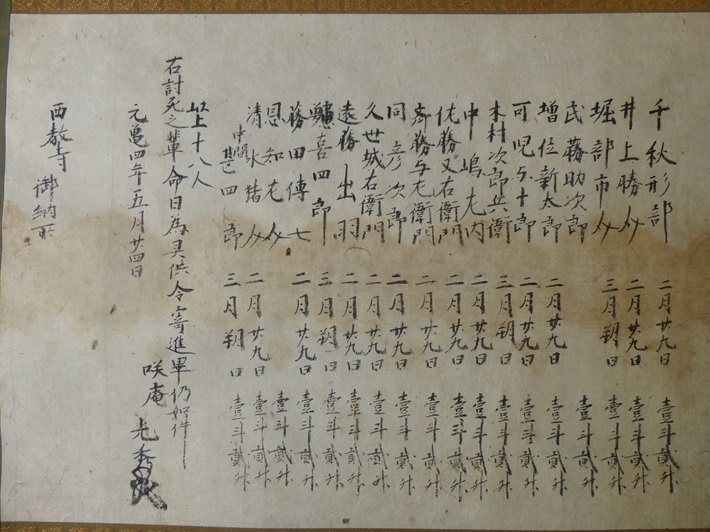 千秋刑部 二月廿九日 壹斗貳升
井上勝介 二月廿九日 壹斗貳升
堀部市介 三月朔日 壹斗貳升
武藤助次郎 壹斗貳升
増位新太郎 二月廿九日 壹斗貳升
可児与十郎 二月廿九日 壹斗貳升
木村次郎兵衛 三月朔日 壹斗貳升
中嶋左内 二月廿九日 壹斗貳升
佐藤又右衛門 二月廿九日 壹斗貳升
斎藤与左衛門 二月廿九日 壹斗貳升
同彦次郎 二月廿九日 壹斗貳升
久世城右衛門 二月廿九日 壹斗貳升
遠藤出羽 二月廿九日 壹斗貳升
喜四郎 三月朔日 壹斗貳升
藤田傳七 二月廿九日 壹斗貳升
恩知左介 壹斗貳升
清水猪介 二月廿九日 壹斗貳升
中間甚四郎 三月朔日 壹斗貳升
以上十八人
右討死之輩命日為霊供令寄進畢仍如件
元亀四年五月廿四日 咲庵 光秀
西教寺 御納所